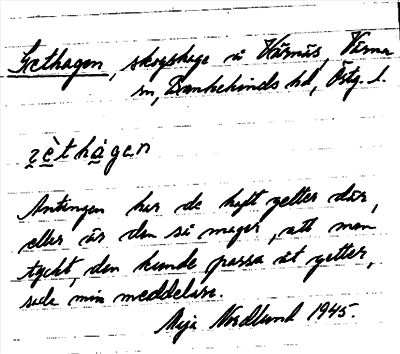 Gethagen, skogshage u Härnäs, Värna
sn, Bankekinds hd, Östg. l.
zèthàgen
Antingen har de haft getter där,
eller är den så mager, att man
tyckt, den kunde passa åt getter,
sade min meddelare.
Maja Nordlund 1945.